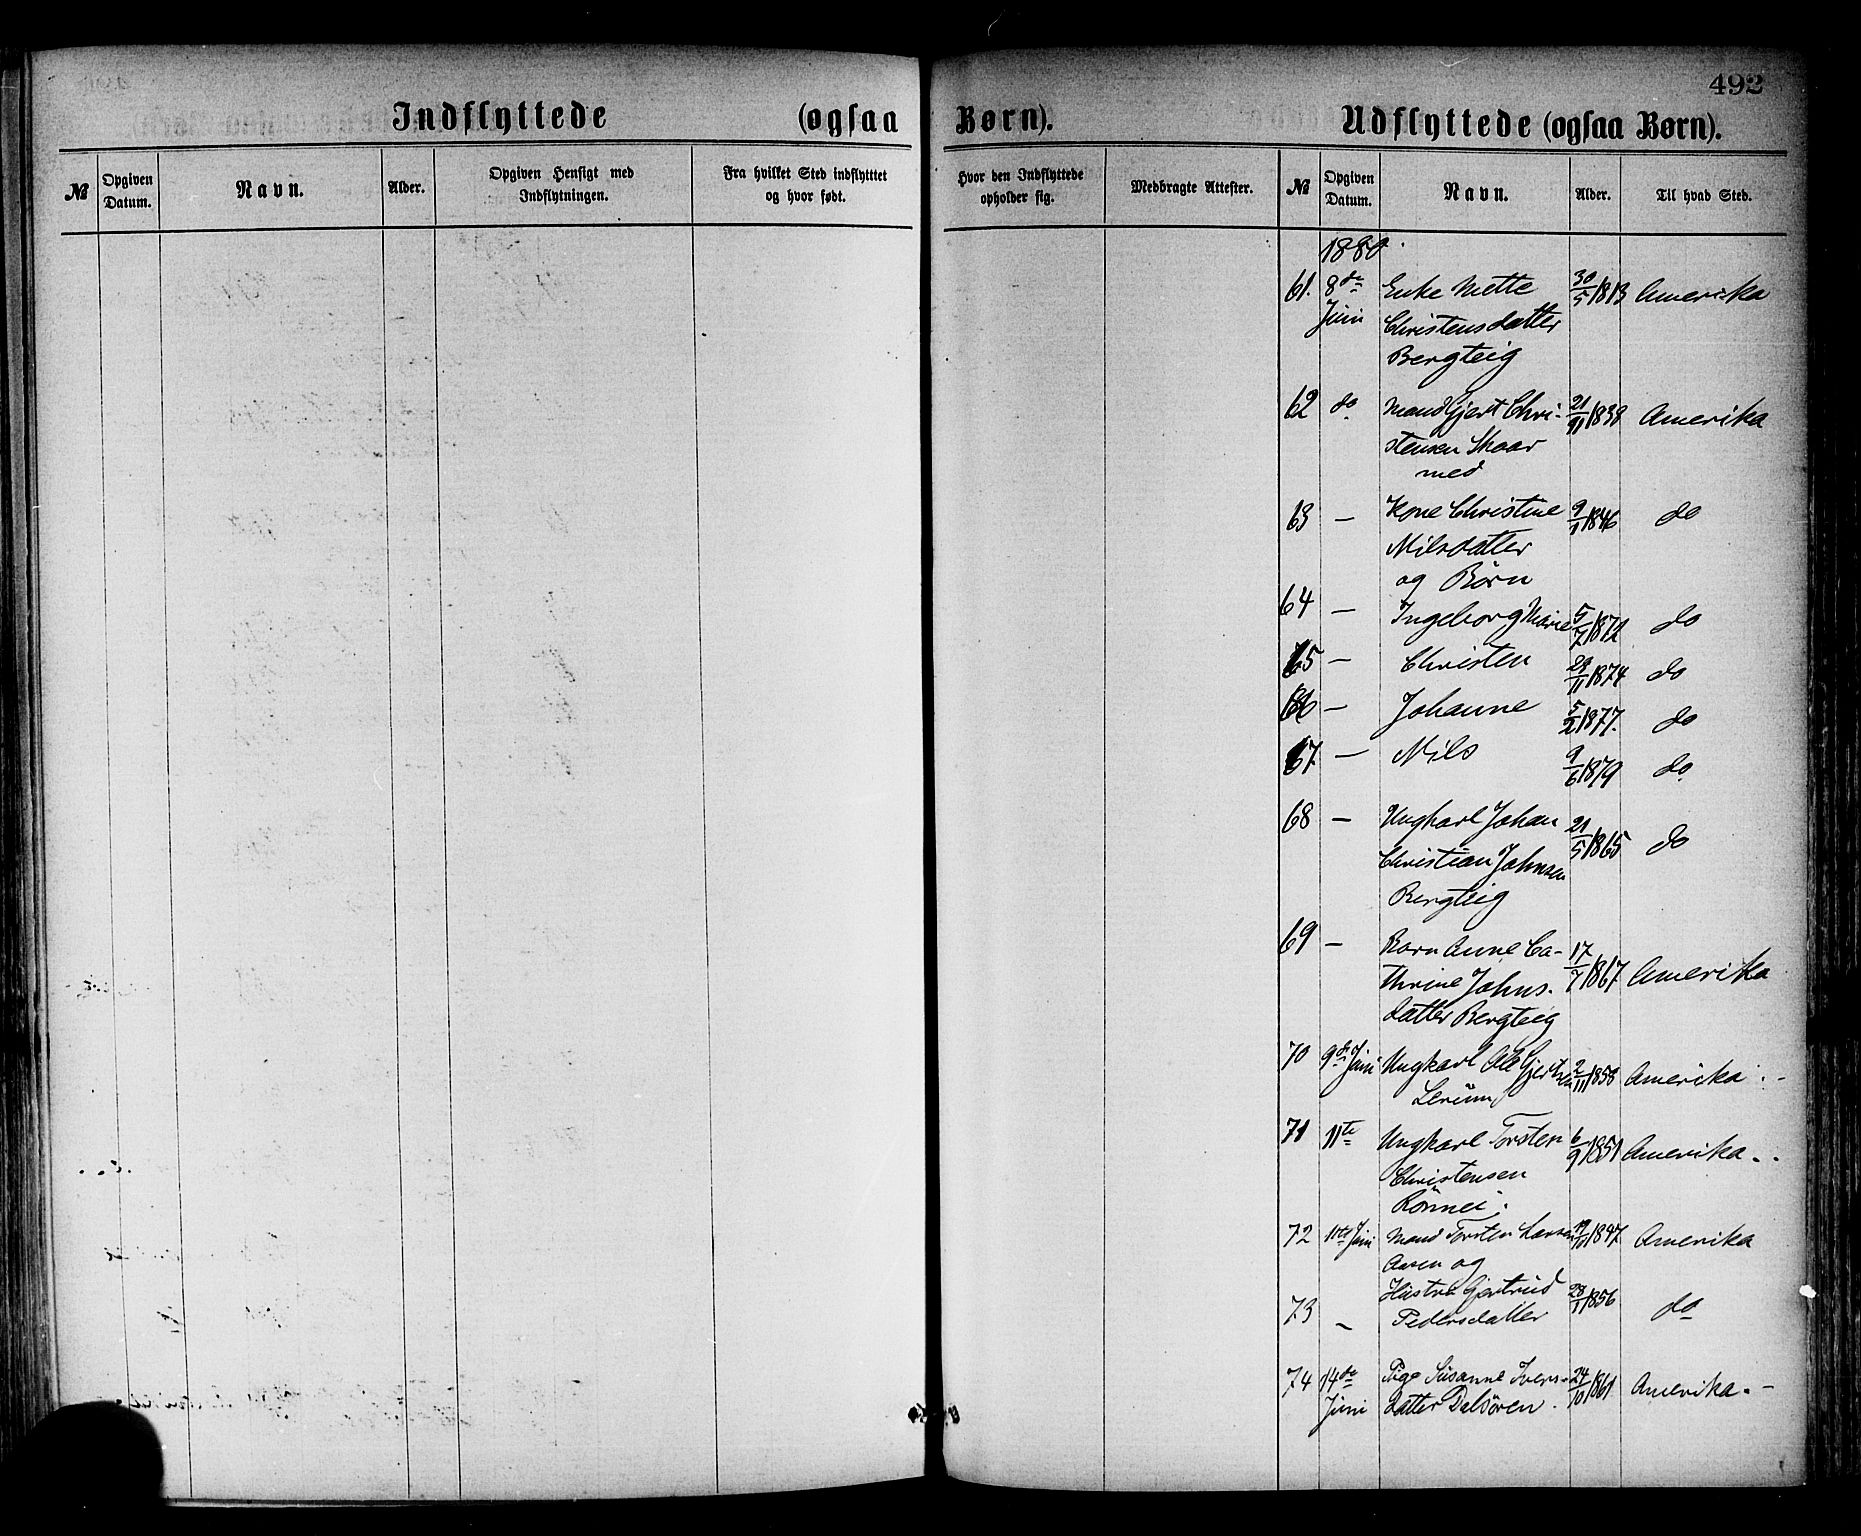 492
Indflyttede (ogsaa Børn).
Udflyttede (ogsaa Børn).
№
Opgiven Datum.
Navn.
Alder.
Opgiven Hensigt med Indflytningen.
Fra hvilket Sted indflyttet og hvor født.
Hvor den Indflyttede opholder sig.
Medbragte Attester.
№
Opgiven Datum.
Navn.
Alder.
Til hvad Sted.
1880.
61. 8de Enke Mette 30/5 1813 Amerika
Juni Christensdatter
Bergteig
62 do. Mand Gjert Chri- 21/11 1838 Amerika
stensen Skaar
med
63 — Kone Christine 9/1 1846 do
Nilsdatter
og Børn
64 — Ingeborg Marie 5/7 1872 do
65 — Christen 29/11 1874 do
66 — Johanne 5/2 1877. do
67. — Nils 9/6 1879 do.
68 — Ungkarl Johan 21/5 1865 do
Christian Johnsen
Bergteig
69 — Barn Anne Ca- 17/7 1867 Amerika
thrine Johns-
datter Bergteig
70 9de Juni Ungkarl Ole Gjertsen 2/11 1858 Amerika. -
Lerum,
71 11te Ungkarl Torsten 6/9 1851 Amerika. .
Christensen
Rönnei.
72 11te Juni Mand Torsten Larsen 19/10 1847 Amerika
Aasen og
Hustru Gjertrud 28/1 1856
73 — Pedersdatter do
74 14de Pige Susanne Ivers- 24/10 1861 Amerika. -
Juni datter Dalsören.